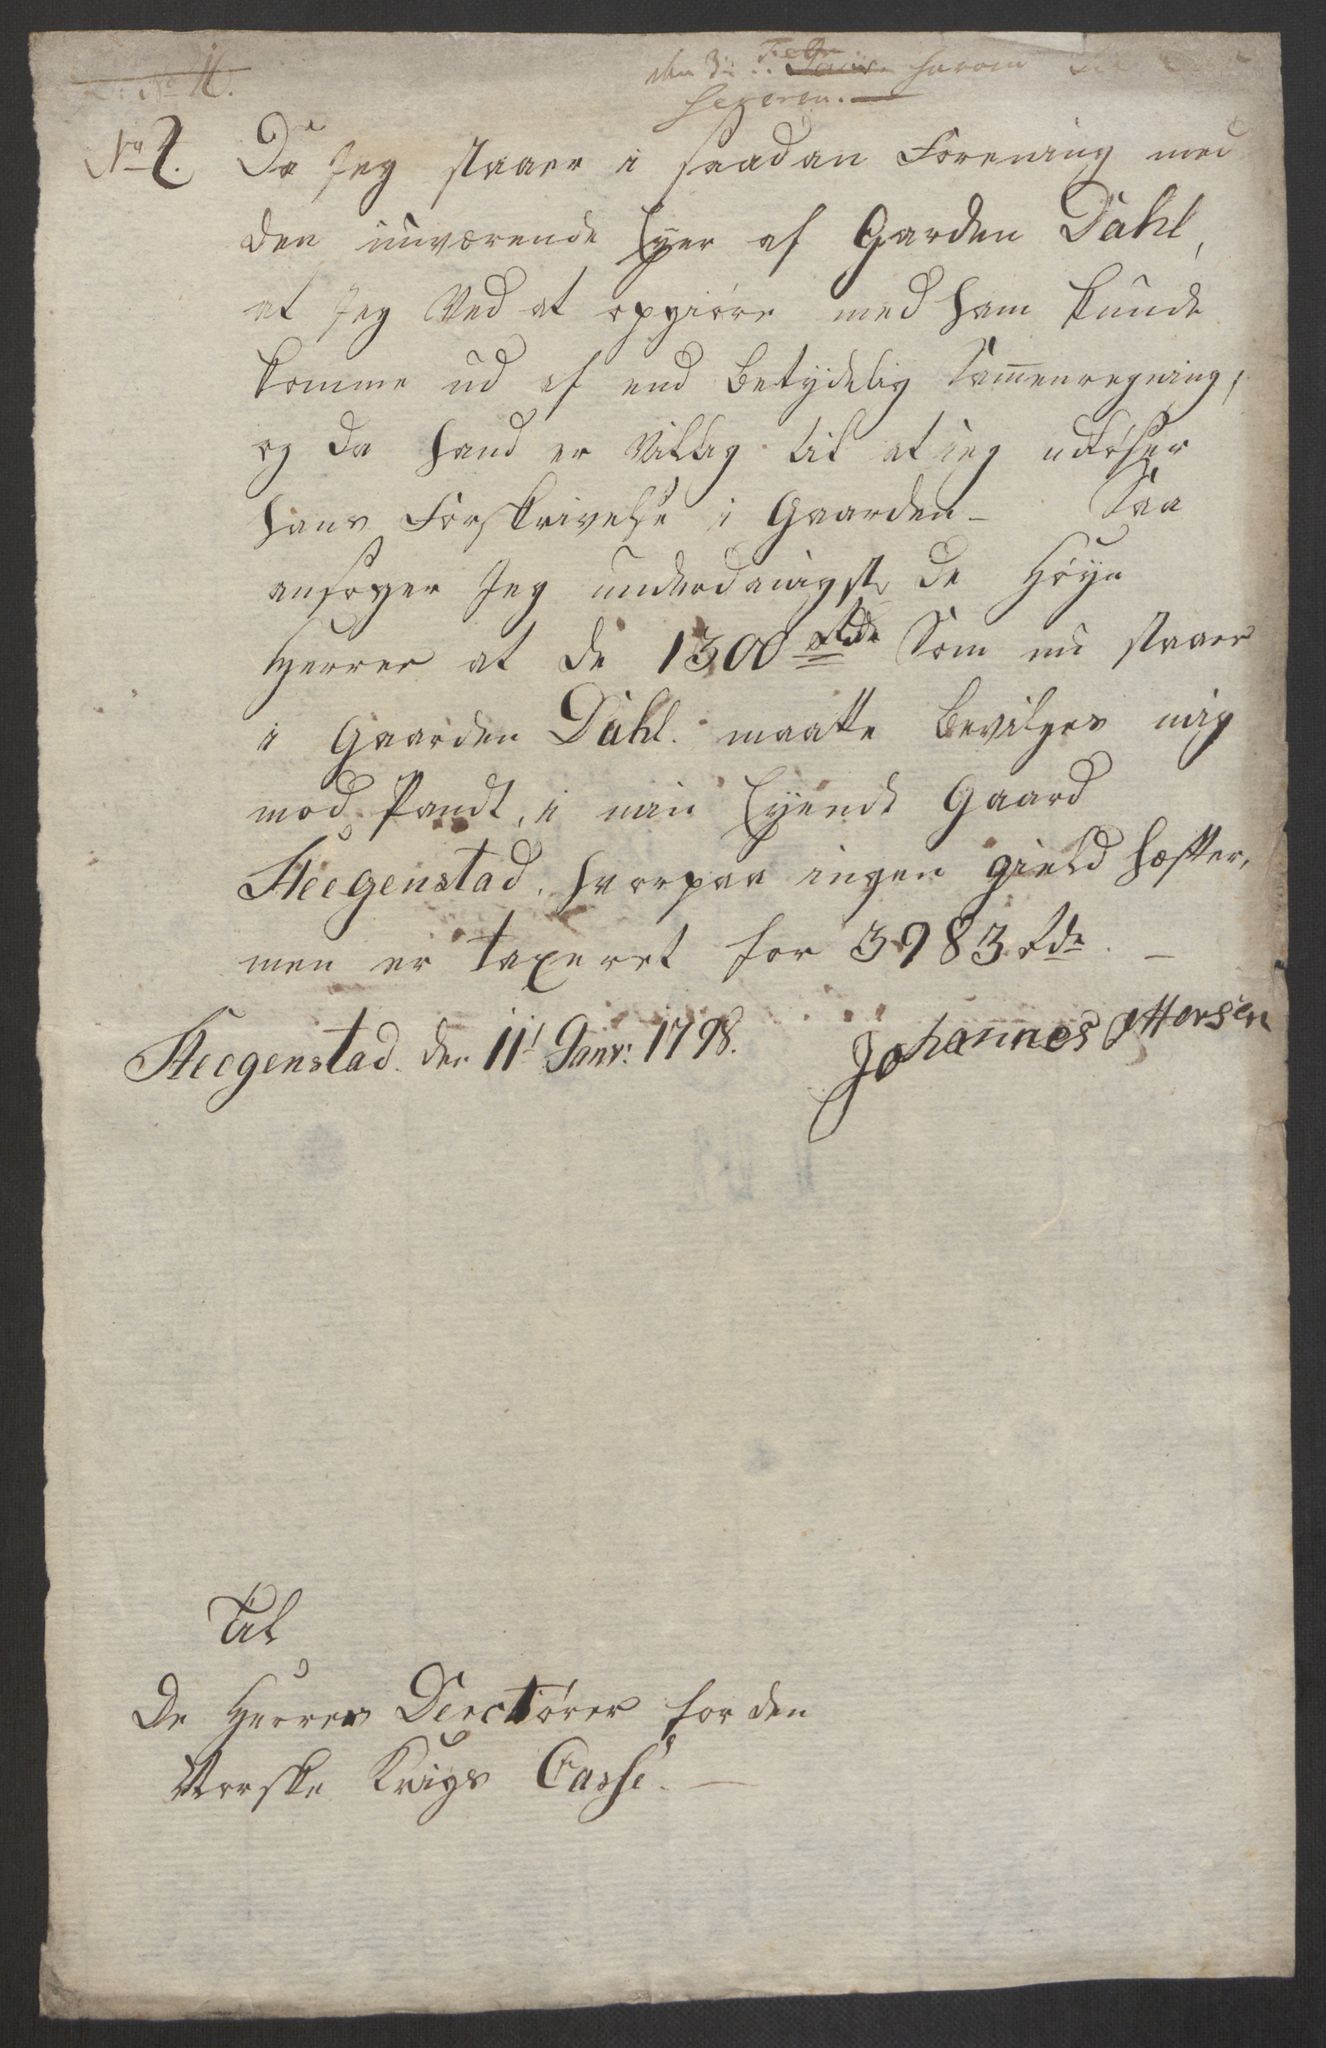 No 11.
den 3: Febr. Janr. herom
No 2. Da Jeg staaer i saadan Forening med
den nuværende Eyer af Gaarden Dahl,
at Jeg Ved at opgiöre med ham kunde
komme ud af end betydelig Sammenregning,
og da hand er villig til at ieg udlöser
hans Forskrivelse i Gaarden – Saa
ansøger Jeg underdanigst de Høye
Herrer at de 1300 rdr Som nu staaer
i Gaarden Dahl. maatte bevilges mig
mod Pandt, i min Eyende Gaard
Steegenstad, hvorpaa ingen gield hæfter,
men er taxeret for 3983 rdr. –
Steegenstad. den 11t Janr: 1798. Johannes Ottersen
Til
De Herrer Directörer for den
Norske Krigs Casse. –